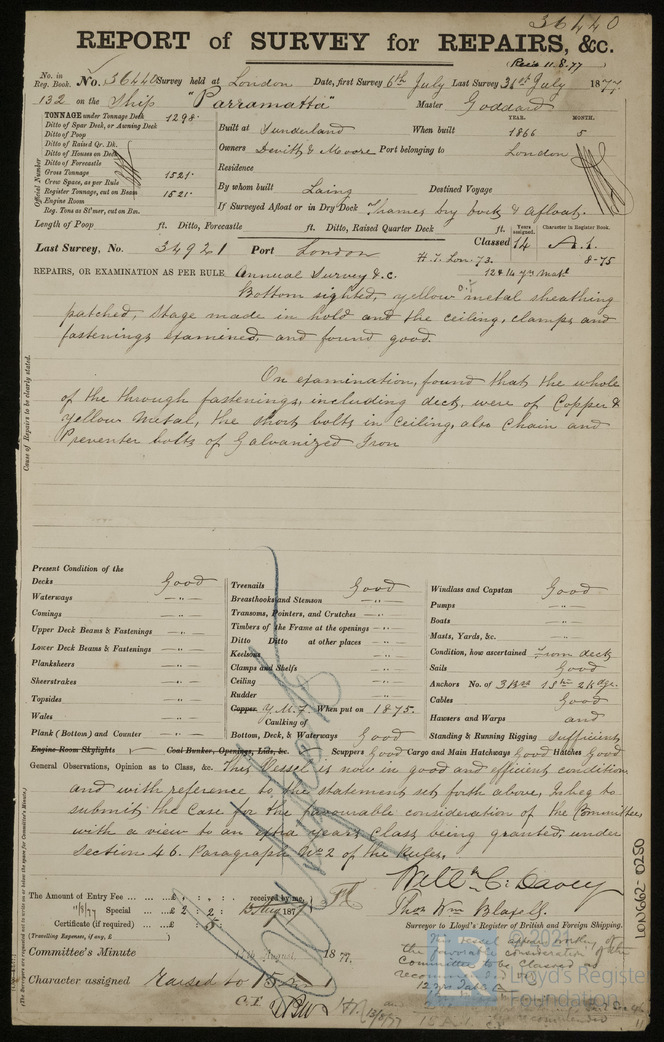 36440
REPORT of SURVEY for REPAIRS, &c.
Rec'd 11.8.77
No. in Reg. Book. No. 36440 Survey held at London Date, first Survey 6th July Last Survey 31st July 1877
132 on the Ship "Parramatta" Master Goddard
TONNAGE under Tonnage Deck 1298
Ditto of Spar Deck, or Awning Deck
Ditto of Poop
Ditto of Raised Qr. Dk.
Ditto of Houses on Deck
Ditto of Forecastle
Gross Tonnage 1521
Crew Space, as per Rule
Register Tonnage, cut on Beam 1521
Engine Room
Reg. Tons as St'mer, cut on Bm.
Official Number
YEAR. MONTH.
Built at Sunderland When built 1866 5
Owners Devitt & Moore Port belonging to London
Residence
By whom built Laing Destined Voyage
If Surveyed Afloat or in Dry Dock Thames dry dock & afloat.
Length of Poop ft. Ditto, Forecastle ft. Ditto, Raised Quarter Deck ft.
Years assigned. Character in Register Book.
Last Survey, No. 34921 Port London Classed 14 A.1.
H.T. Lon. 73. 8-75
REPAIRS, OR EXAMINATION AS PER RULE, Annual Survey &c.
Bottom sighted, yellow metal sheathing
patched, stage made in hold and the ceiling, clamps and
fastenings examined, and found good.
On examination, found that the whole
of the through fastenings, including deck, were of Copper &
Yellow Metal, the short bolts in Ceiling, also Chain and
Preventer bolts of Galvanized Iron
Cause of Repairs to be clearly stated.
Present Condition of the
Decks Good
Waterways - " -
Comings - " -
Upper Deck Beams & Fastenings - " -
Lower Deck Beams & Fastenings - " -
Planksheers - " -
Sheerstrakes - " -
Topsides - " -
Wales - " -
Plank (Bottom) and Counter - " -
Engine Room Skylights Coal Bunker, Openings, Lids, &c.
Treenails Good
Breasthooks and Stemson - " -
Transoms, Pointers, and Crutches - " -
Timbers of the Frame at the openings - " -
Ditto Ditto at other places - " -
Keelsons - " -
Clamps and Shelfs - " -
Ceiling - " -
Rudder - " -
Copper Y.M. When put on 1875.
Caulking of
Bottom, Deck, & Waterways Good
Windlass and Capstan Good
Pumps - " -
Boats - " -
Masts, Yards, &c. - " -
Condition, how ascertained From deck
Sails Good
Anchors No. of
Cables Good
Hawsers and Warps and
Standing & Running Rigging sufficient
Scuppers Good Cargo and Main Hatchways Good Hatches Good
General Observations, Opinion as to Class, &c. This Vessel is now in good and efficient condition
and with reference to the statement set forth above, I beg to
submit the case for the favourable consideration of the Committee,
with a view to an extra years Class being granted, under
Section 46. Paragraph No. 2 of the Rules.
The Amount of Entry Fee ... £ : : received by me,
Special ... £ 2 : 2 : 187
Certificate (if required) ... £ : 5 :
(Travelling Expenses, if any, £ )
Will. C. Davey
Thos. Wm. Blaxell.
Surveyor to Lloyd's Register of British and Foreign Shipping.
Committee's Minute 17th August, 1877.
Character assigned Raised to 15
This vessel appears worthy of
the favorable consideration of the
Committee to be classed as
recommended
LON662-0250
© 2021
Lloyd's Register
Foundation